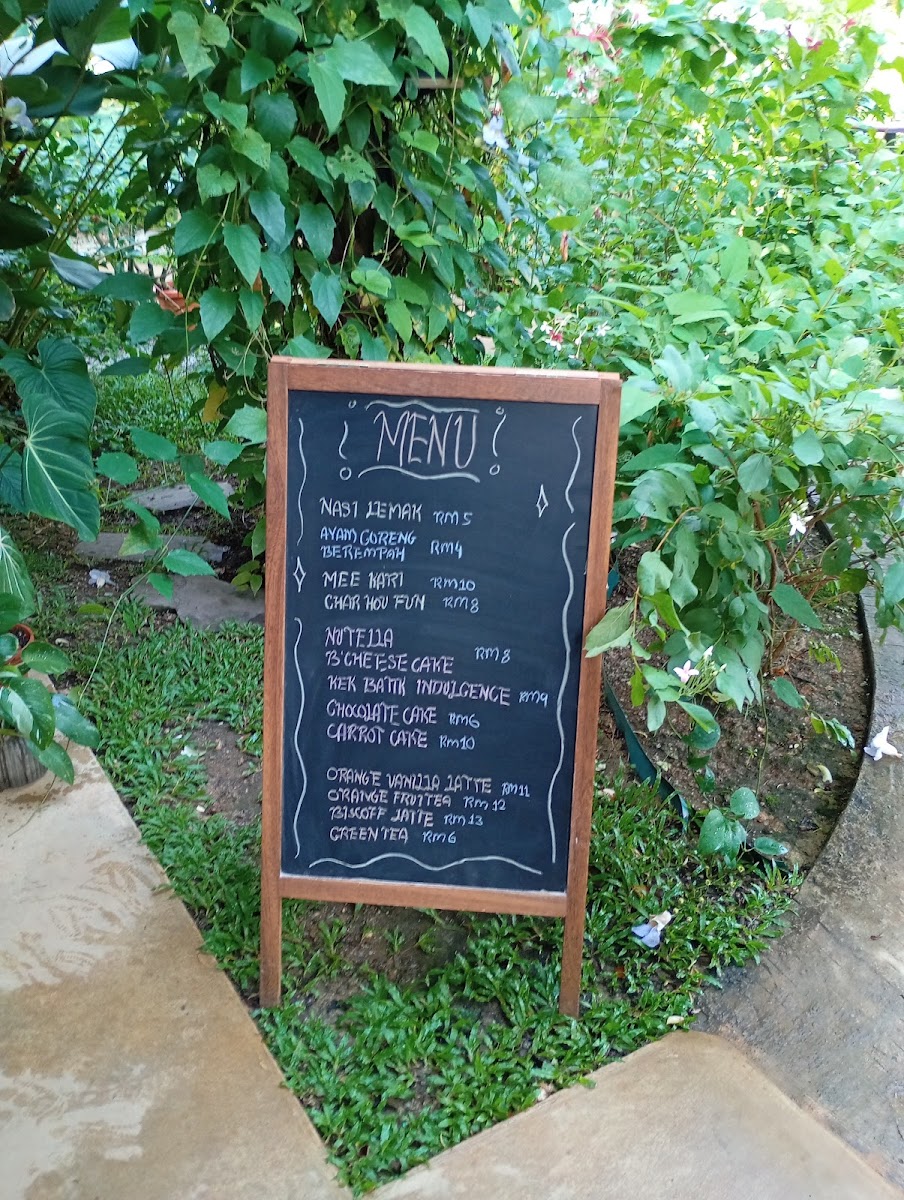 MENU
NASI LEMAK RM5
AYAM GORENG
BEREMPAH RM4
MEE KARI RM10
CHAR HOU FUN RM8
NUTELLA
B'CHEESE CAKE RM8
KEK BATIK INDULGENCE RM9
CHOCOLATE CAKE RM6
CARROT CAKE RM10
ORANGE VANILLA LATTE RM11
ORANGE FRUITEA RM12
BISCOFF LATTE RM13
GREEN TEA RM6